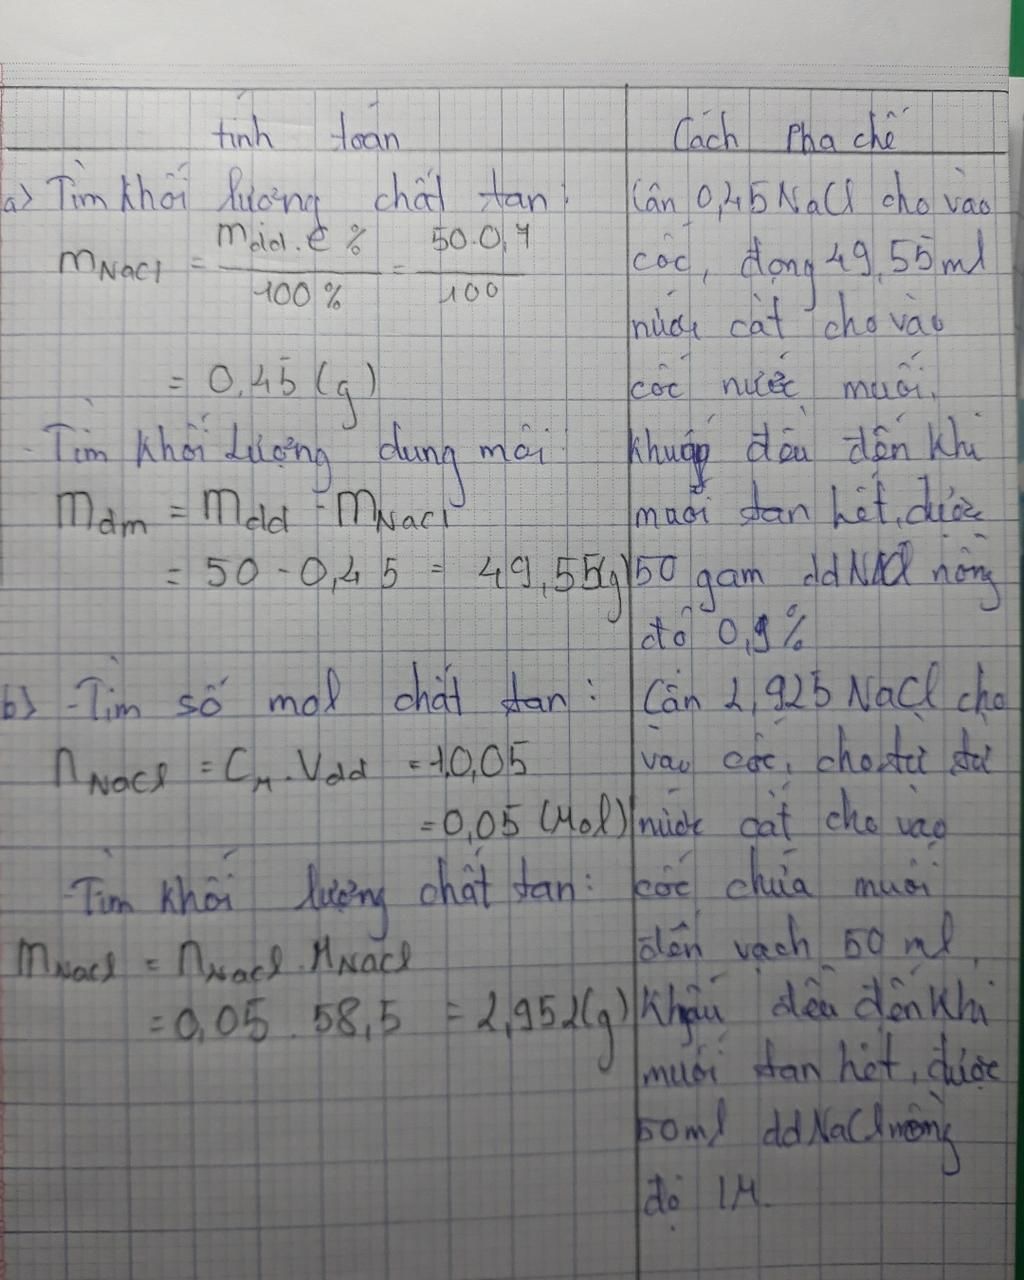 tính toán
a) Tìm khối lượng chất tan:
mNaCl = mdd.C% / 100% = 50.0,9 / 100
= 0,45 (g)
- Tìm khối lượng dung môi:
mdm = mdd - mNaCl
= 50 - 0,45 = 49,55(g)
b) - Tìm số mol chất tan:
nNaCl = CM.Vdd = 1.0,05
= 0,05 (Mol)
- Tìm khối lượng chất tan:
mNaCl = nNaCl.MNaCl
= 0,05 . 58,5 = 2,952(g)
Cách Pha chế
Cân 0,45 NaCl cho vào
cốc, đong 49,55 ml
nước cất cho vào
cốc nước muối.
khuấy đều đến khi
muối tan hết, được
50 gam dd NaCl nồng
độ 0,9%
Cân 2,925 NaCl cho
vào cốc, cho từ từ
nước cất cho vào
cốc chứa muối
đến vạch 50 ml.
Khuấy đều đến khi
muối tan hết, được
50ml dd NaCl nồng
độ 1M.